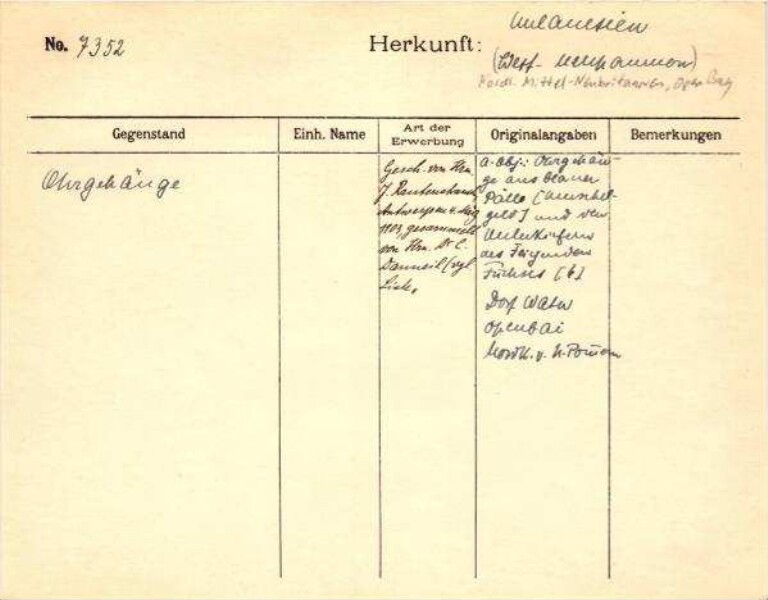 No. 7352
Herkunft: Melanesien
(West-Neupommern)
Nördl. Mittel-Neubritannien, Open Bay
Gegenstand
Einh. Name
Art der Erwerbung
Originalangaben
Bemerkungen
Ohrgehänge
Gesch. von Hrn.
J. Rautenstrauch,
Antwerpen
1103, gesammelt
von Hrn. Dr C.
Danneil (vgl.
Liste.
a. Obj.: Ohrgehän-
ge aus blauer
Palle (Muschel-
geld) und den
Unterkiefern
des fliegenden
Fuchses (b)
Dorf
Openbai
Nordk. v. N. Pomm